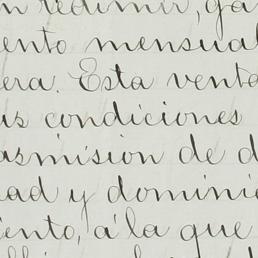 n redimir, ga
ento mensual
era. Esta venta
us condiciones
asmision de d
dad y domini
iento, á la que